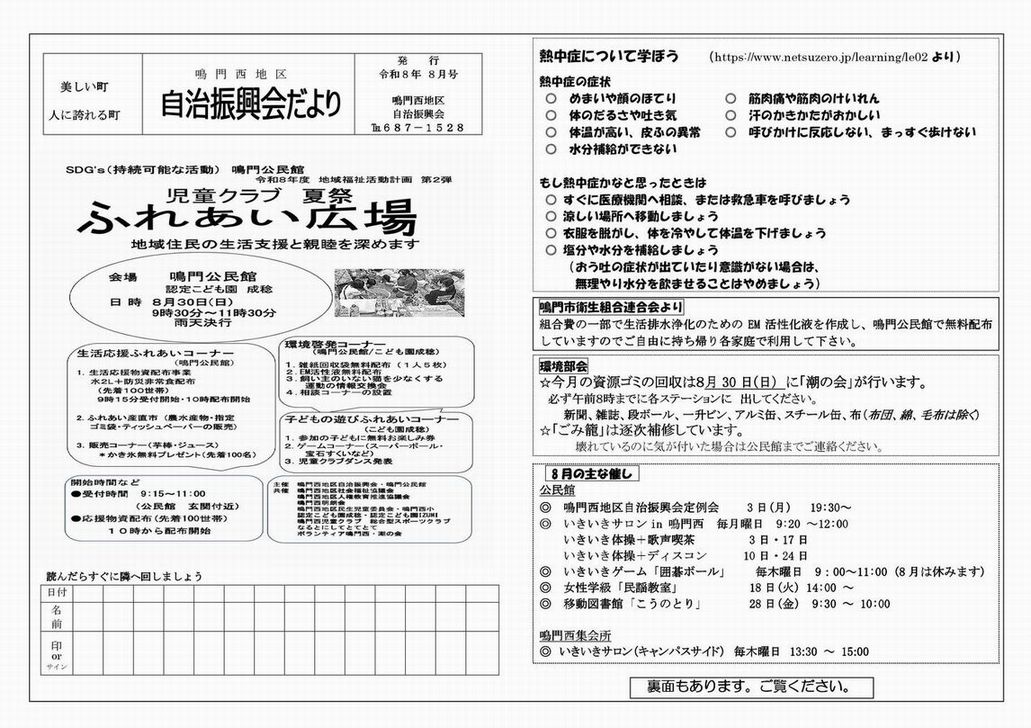 美しい町
人に誇れる町
鳴門西地区
自治振興会だより
発 行
令和8年 8月号
鳴門西地区
自治振興会
℡687-1528
SDG's(持続可能な活動) 鳴門公民館
令和8年度 地域福祉活動計画 第2弾
児童クラブ 夏祭
ふれあい広場
地域住民の生活支援と親睦を深めます
会場 鳴門公民館
認定こども園 成稔
日 時 8月30日(日)
9時30分~11時30分
雨天決行
生活応援ふれあいコーナー
(鳴門公民館)
1. 生活応援物資配布事業
水2L+防災非常食配布
(先着100世帯)
9時15分受付開始・10時配布開始
2. ふれあい産直市(農水産物・指定
ゴミ袋・ティッシュペーパーの販売)
3. 販売コーナー(芋棒・ジュース)
*かき氷無料プレゼント(先着100名)
環境啓発コーナー
(鳴門公民館/こども園成稔)
1. 雑紙回収袋無料配布(1人5枚)
2. EM活性液無料配布
3. 飼い主のいない猫を少なくする
運動の情報交換会
4. 相談コーナーの設置
子どもの遊びふれあいコーナー
(こども園成稔)
1. 参加の子どもに無料お楽しみ券
2. ゲームコーナー(スーパーボール・
宝石すくいなど)
3. 児童クラブダンス発表
開始時間など
●受付時間 9:15~11:00
(公民館 玄関付近)
●応援物資配布(先着100世帯)
10時から配布開始
主催 鳴門西地区自治振興会・鳴門公民館
共催 鳴門西地区社会福祉協議会
鳴門西地区人権教育推進協議会
鳴門西明朗会
鳴門西地区民生児童委員会・鳴門西小
認定こども園成稔・認定こども園IZUMI
鳴門西児童クラブ 総合型スポーツクラブ
なるとにしてとてとて
ボランティア鳴門西・潮の会
読んだらすぐに隣へ回しましょう
日付
名
前
印
or
サイン
熱中症について学ぼう (https://www.netsuzero.jp/learning/le02 より)
熱中症の症状
○ めまいや顔のほてり ○ 筋肉痛や筋肉のけいれん
○ 体のだるさや吐き気 ○ 汗のかきかたがおかしい
○ 体温が高い、皮ふの異常 ○ 呼びかけに反応しない、まっすぐ歩けない
○ 水分補給ができない
もし熱中症かなと思ったときは
○ すぐに医療機関へ相談、または救急車を呼びましょう
○ 涼しい場所へ移動しましょう
○ 衣服を脱がし、体を冷やして体温を下げましょう
○ 塩分や水分を補給しましょう
(おう吐の症状が出ていたり意識がない場合は、
無理やり水分を飲ませることはやめましょう)
鳴門市衛生組合連合会より
組合費の一部で生活排水浄化のための EM 活性化液を作成し、鳴門公民館で無料配布
していますのでご自由に持ち帰り各家庭で利用して下さい。
環境部会
☆今月の資源ゴミの回収は8月 30 日(日) に「潮の会」が行います。
必ず午前8時までに各ステーションに 出してください。
新聞、雑誌、段ボール、一升ビン、アルミ缶、スチール缶、布(布団、綿、毛布は除く)
☆「ごみ籠」は逐次補修しています。
壊れているのに気が付いた場合は公民館までご連絡ください。
8月の主な催し
公民館
◎ 鳴門西地区自治振興会定例会 3日(月) 19:30~
◎ いきいきサロン in 鳴門西 毎月曜日 9:20 ~12:00
いきいき体操+歌声喫茶 3日・17日
いきいき体操+ディスコン 10日・24日
◎ いきいきゲーム「囲碁ボール」 毎木曜日 9:00~11:00 (8月は休みます)
◎ 女性学級「民謡教室」 18日(火) 14:00 ~
◎ 移動図書館「こうのとり」 28日(金) 9:30 ~ 10:00
鳴門西集会所
◎ いきいきサロン(キャンパスサイド) 毎木曜日 13:30 ~ 15:00
裏面もあります。ご覧ください。